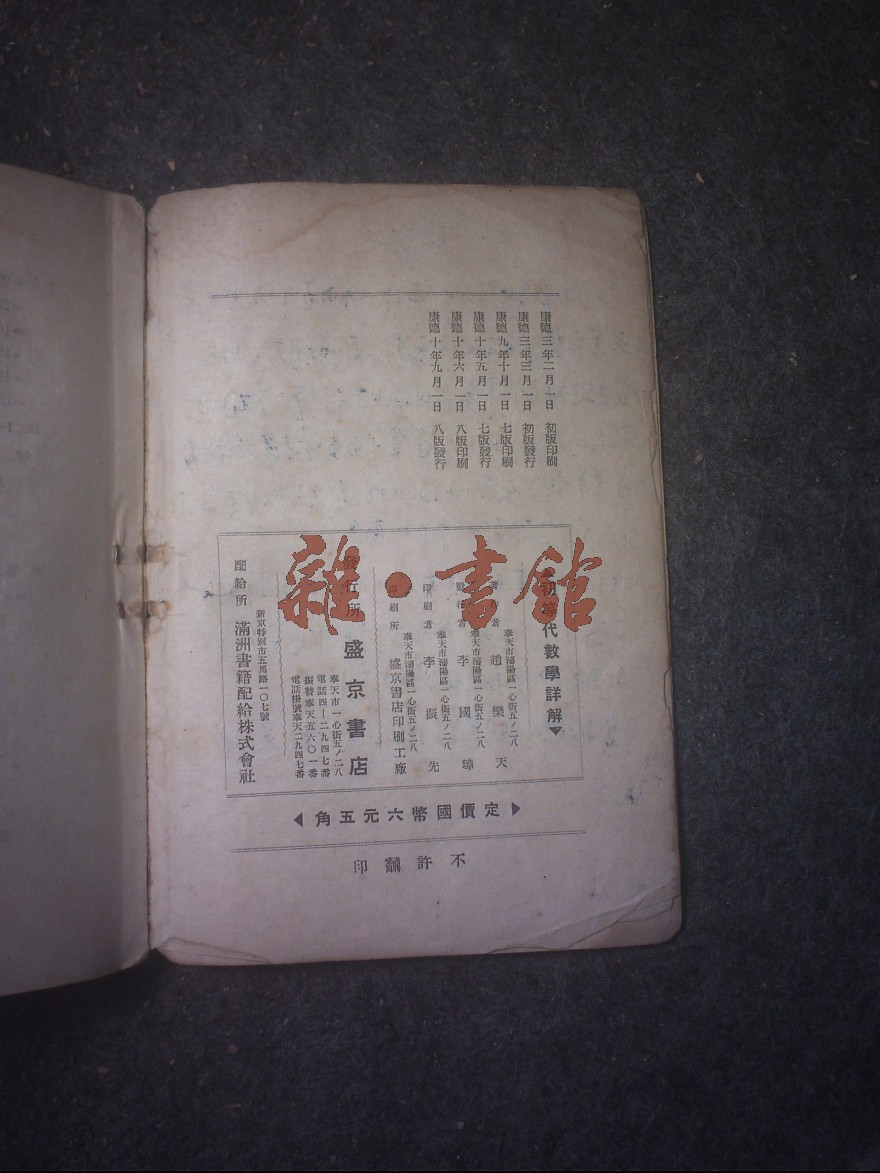 康德三年二月一日 初版印刷
康德三年三月一日 初版發行
康德九年十月一日 七版印刷
康德十年五月一日 七版發行
康德十年六月一日 八版印刷
康德十年九月一日 八版發行
初等代數學詳解▼
奉天市瀋陽區一心街五ノ二八
著作者 趙樂天
奉天市瀋陽區一心街五ノ二八
發行者 李國璋
奉天市瀋陽區一心街五ノ二八
印刷者 李振先
奉天市瀋陽區一心街五ノ二八
印刷所 盛京書店印刷工廠
發行所 盛京書店
奉天市一心街五ノ二八
電話四—二九四七番
振替奉天五六〇一番
電話掛號奉天二九四七番
新京特別市五馬路一〇七號
配給所 滿洲書籍配給株式會社
▶定價國幣六元五角◀
不許翻印
雜·書館